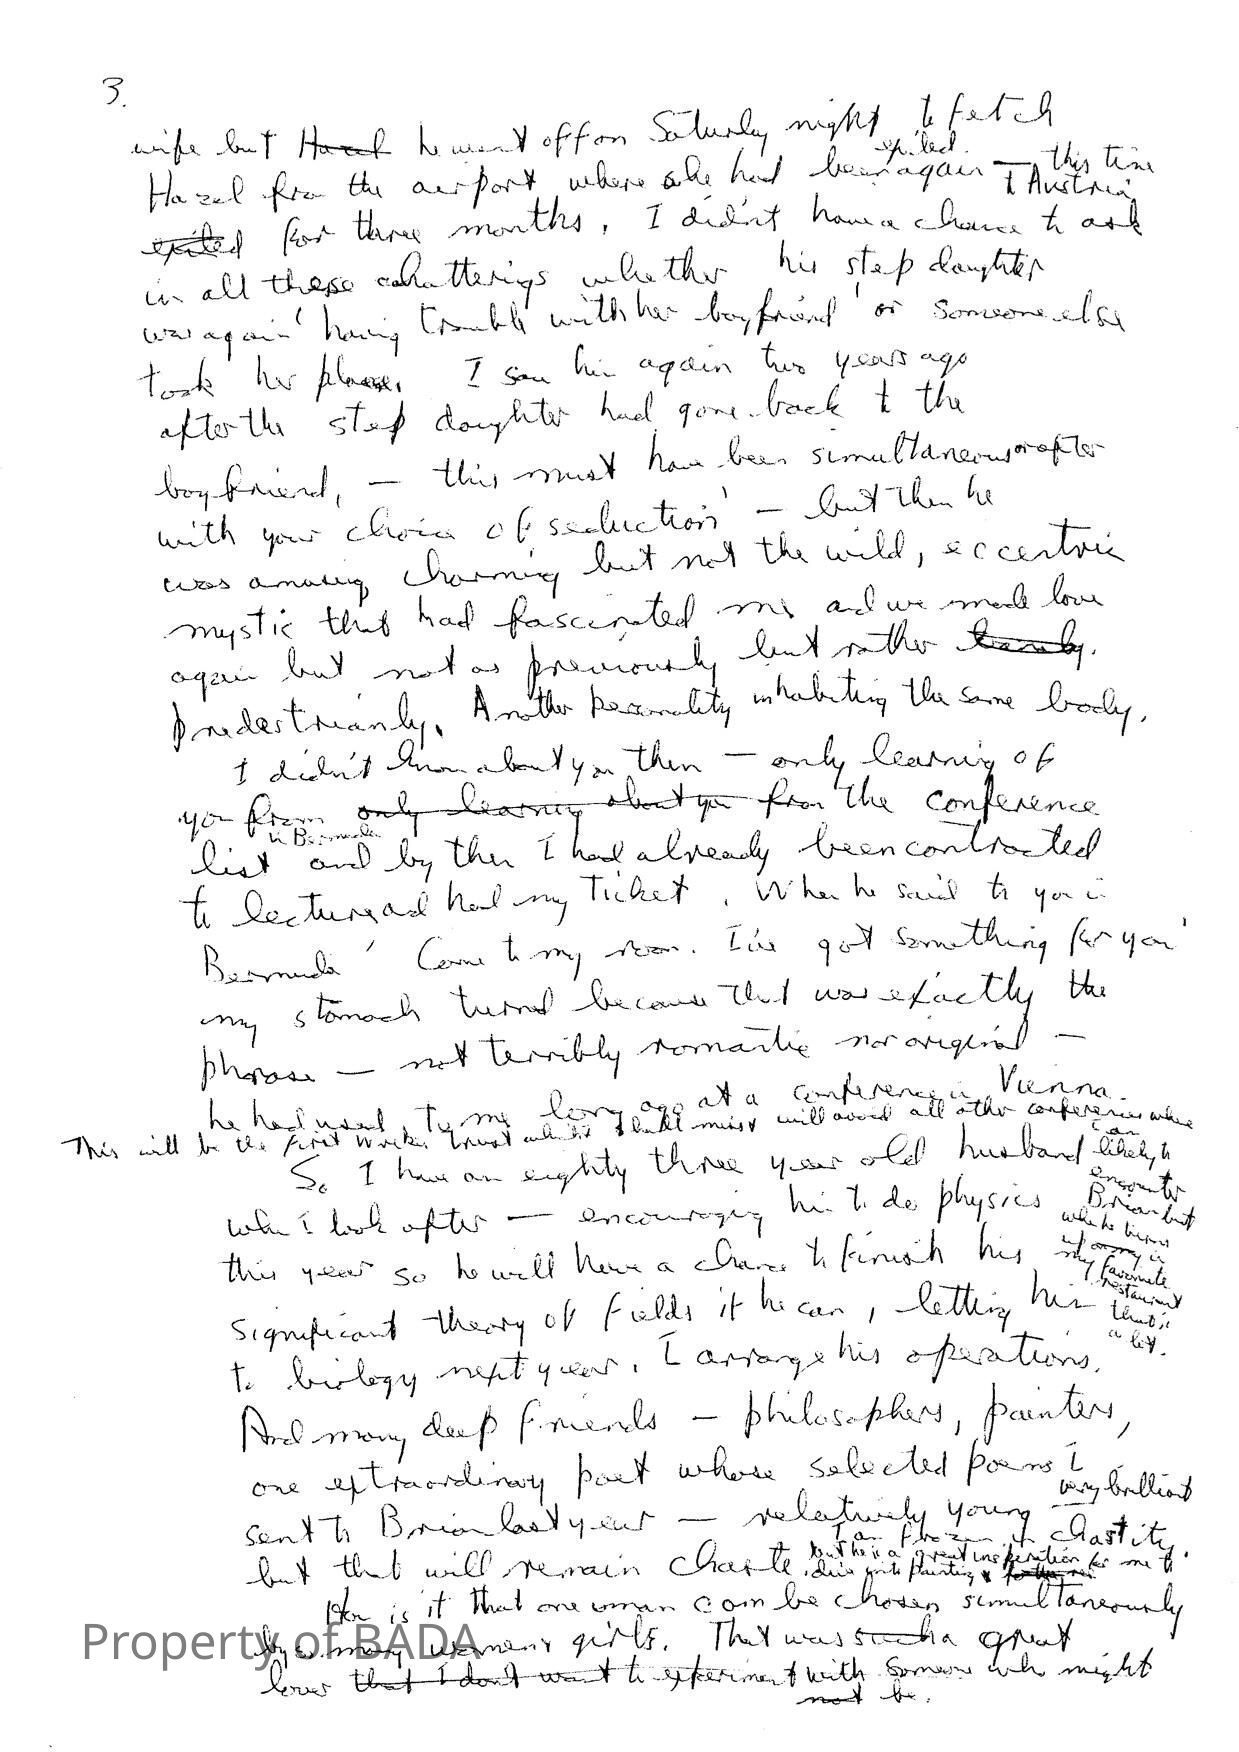 3.
wife but Hazel he went off on Saturday night to fetch
exiled
Hazel from the airport where she had been again — this time
to Austria
exiled for three months. I didn't have a chance to ask
in all these chatterings whether his step daughter
was again 'having trouble with her boyfriend' or someone else
took her place. I saw him again two years ago
after the step daughter had gone back to the
boyfriend, — this must have been simultaneous or after
with your choice of seduction' — but then he
was amusing charming but not the wild, eccentric
mystic that had fascinated me and we made love
again but not as previously but rather
predestrianly. Another personality inhabiting the same body.
I didn't know about you then — only learning of
you from only learning about you from the conference
in Bermuda
list and by then I had already been contracted
to lecture and had my ticket. When he said to you in
Bermuda 'Come to my room. I've got something for you'
my stomach turned because that was exactly the
phrase — not terribly romantic nor original —
he had used to me long ago at a conference in Vienna.
This will be the first Wrekin Trust which I shall miss & will avoid all other conferences where
I am
likely to
encounter
Brian but
when he turns
up on my in
my favourite
restaurant
that is
a lot.
So I have an eighty three year old husband
who I look after — encouraging him to do physics
this year so he will have a chance to finish his
significant theory of fields if he can, letting him
to biology next year. I arrange his operations.
And many deep friends — philosophers, painters,
one extraordinary poet whose selected poems I
sent to Brian last year — relatively young very brilliant
I am frozen in chastity.
but that will remain chaste, but he is a great inspiration for me to
painting &
How is it that one woman can be chosen simultaneously
by so many women & girls. That was such a great
lover that I don't want to experiment with someone who might
not be.
Property of BADA